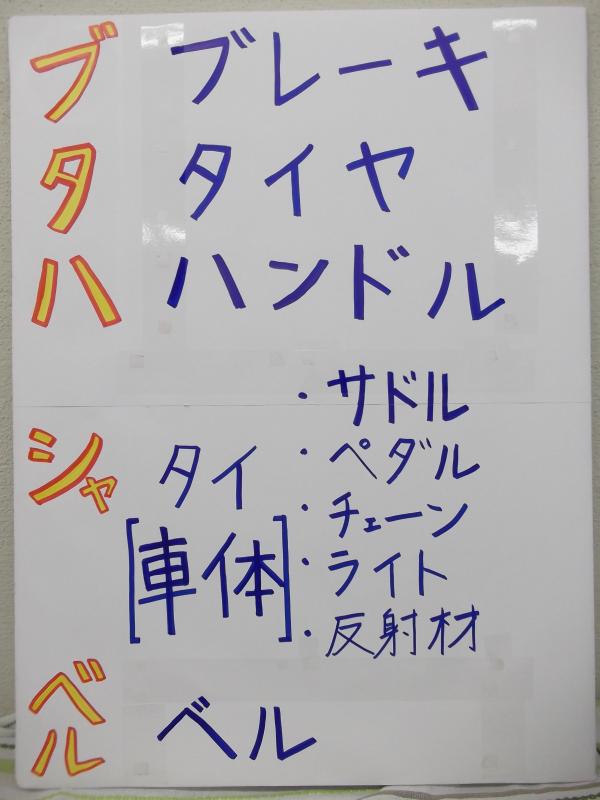 ブ ブレーキ
タ タイヤ
ハ ハンドル
シャ タイ
[車体]
・サドル
・ペダル
・チェーン
・ライト
・反射材
ベル ベル